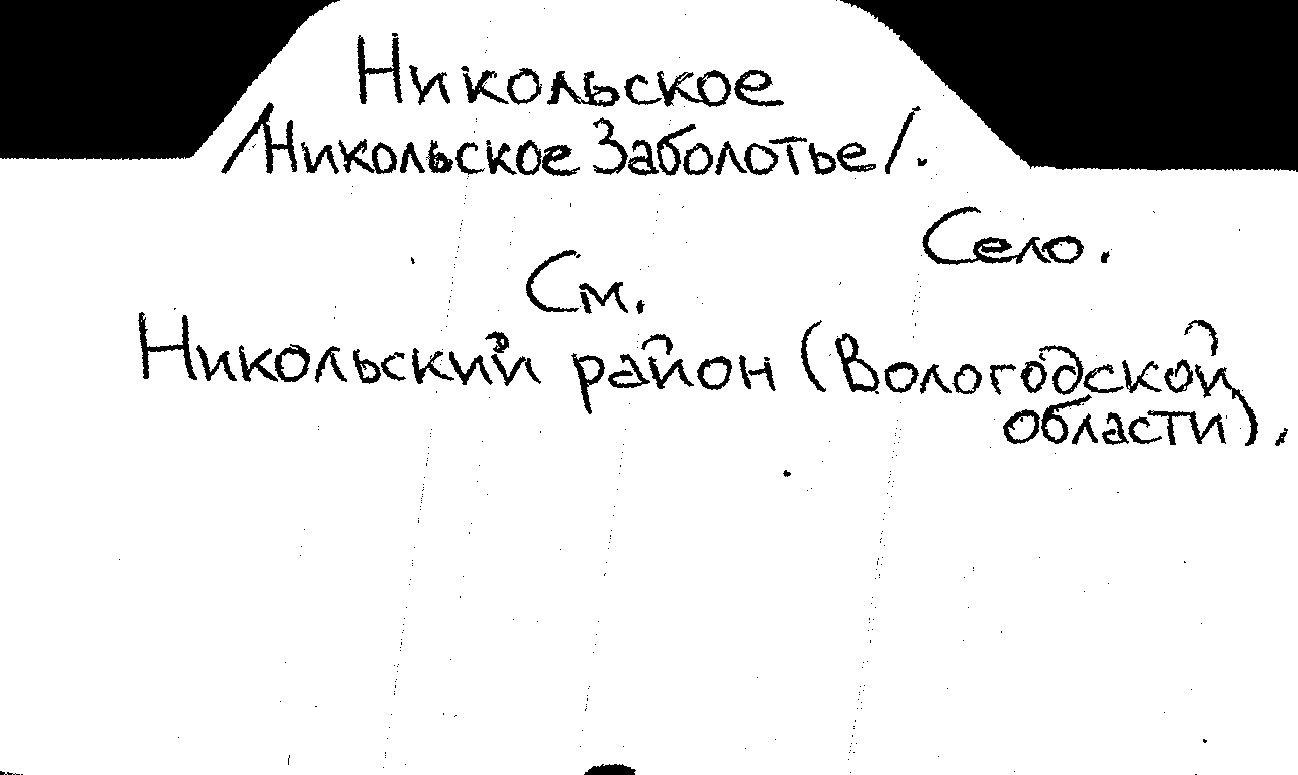 Никольское
/Никольское Заболотье/.
Село.
См.
Никольский район (Вологодской
области).